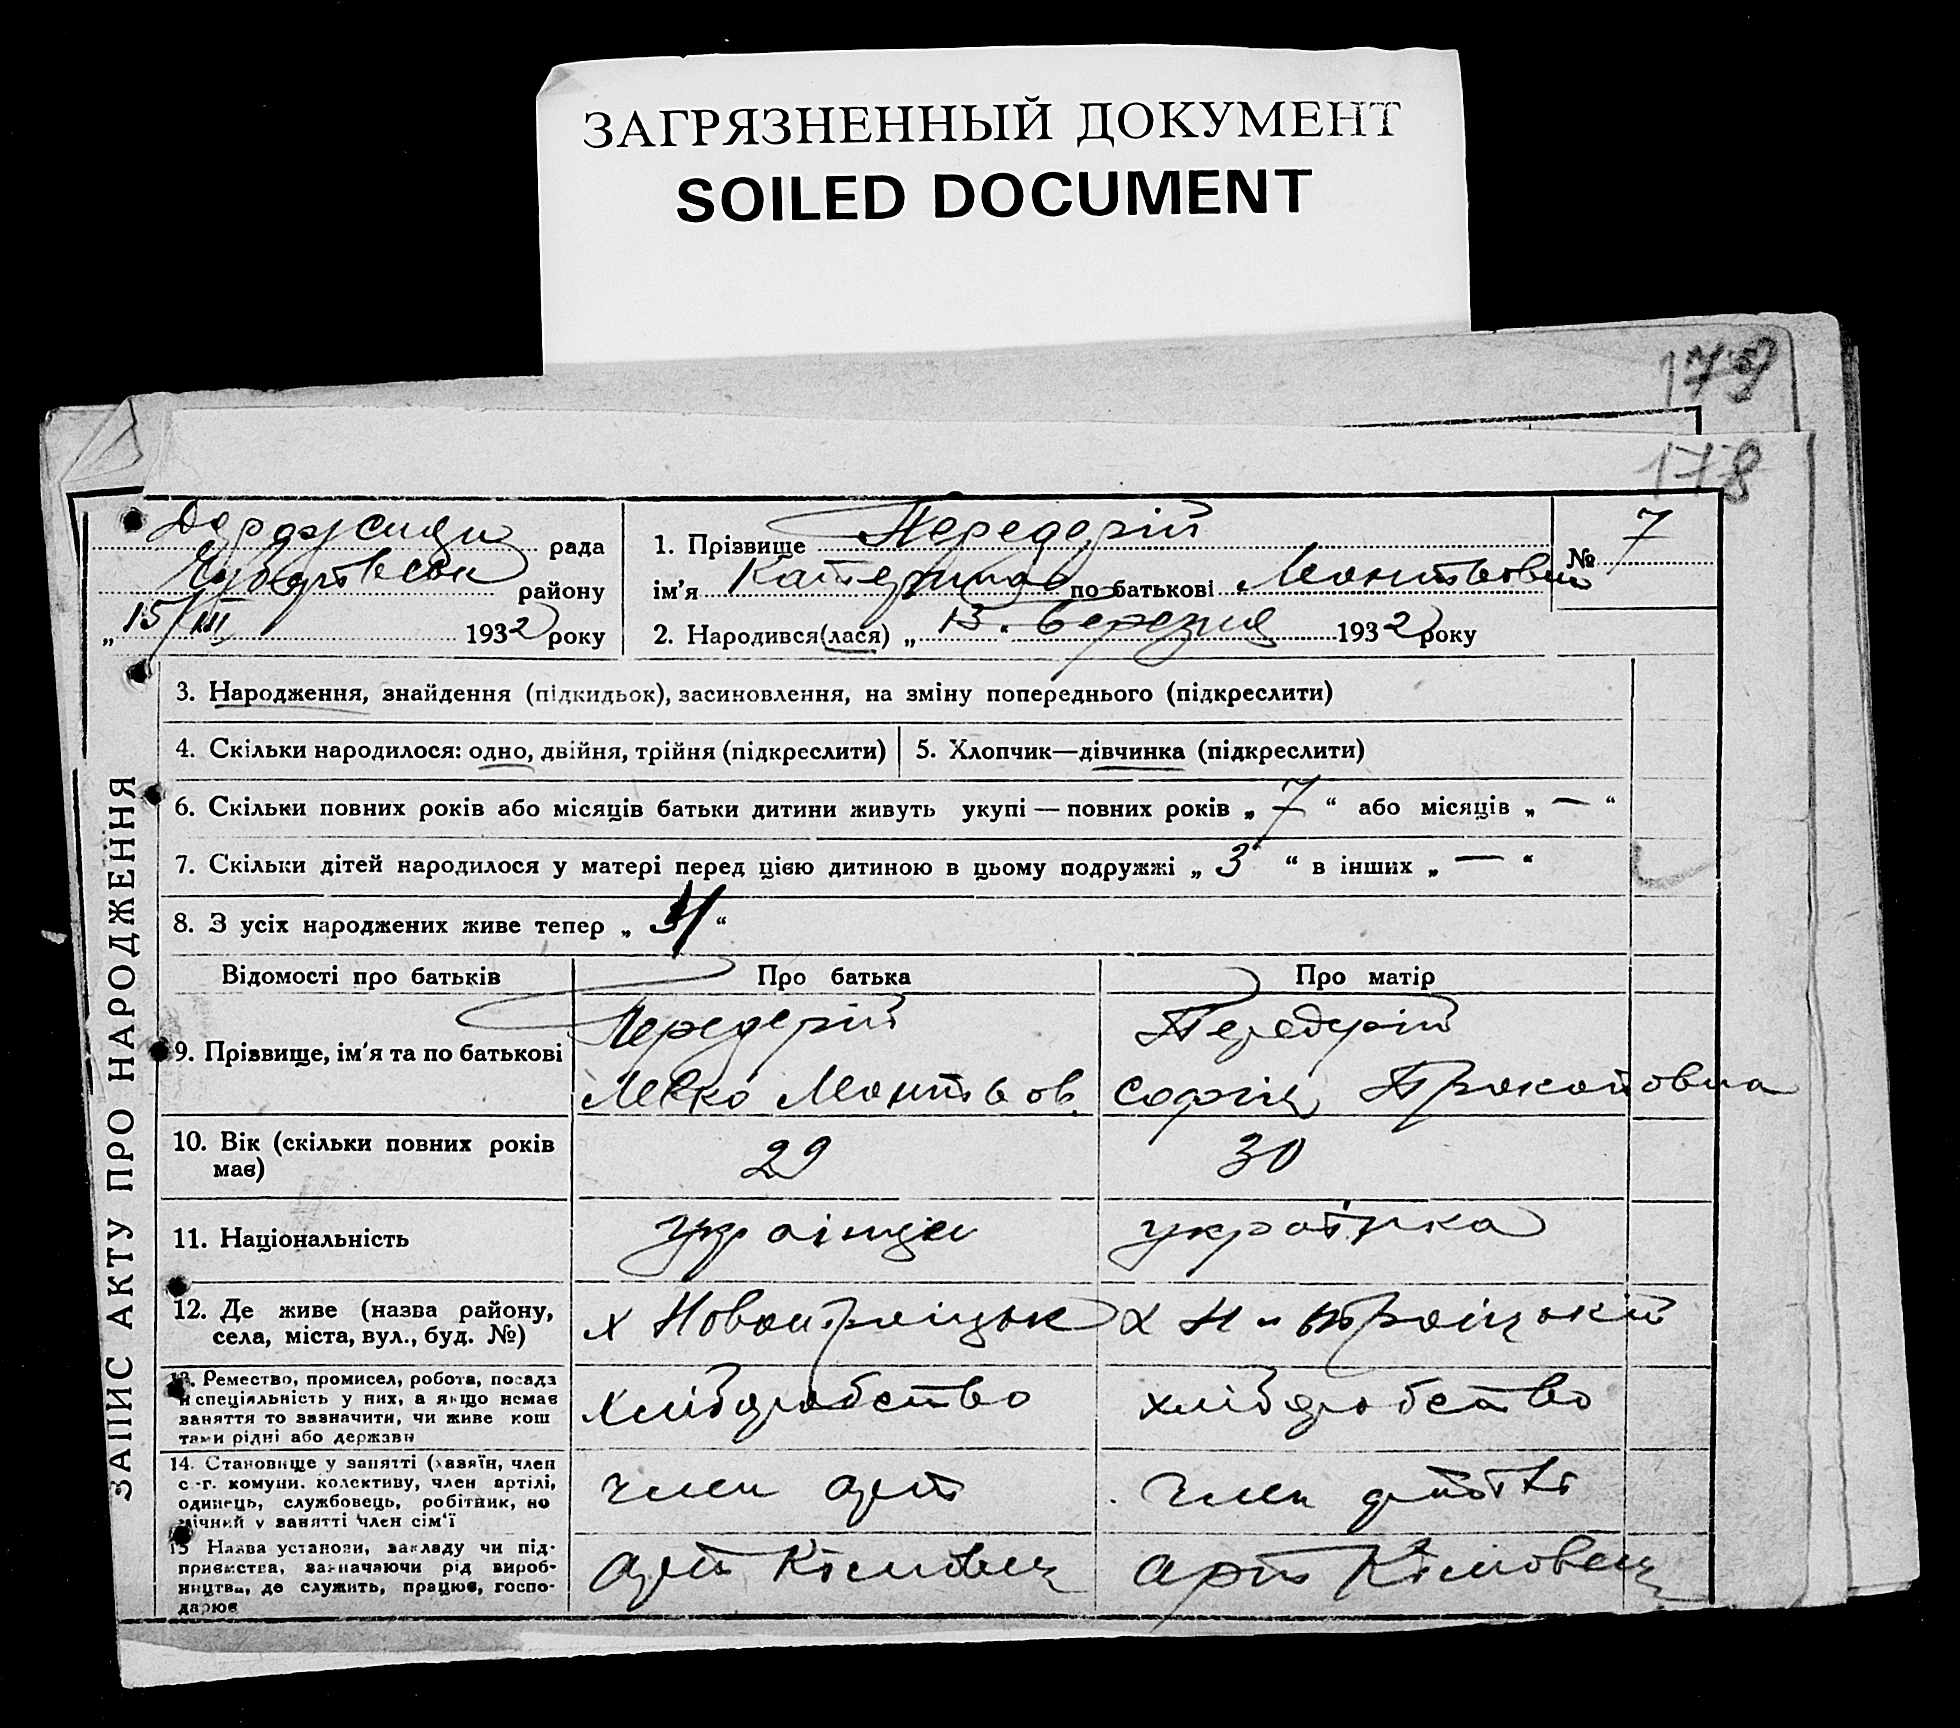 ЗАГРЯЗНЕННЫЙ ДОКУМЕНТ
SOILED DOCUMENT
179
178
рада
району
„15/III 1932 року
1. Прізвище Передерій
ім'я Катерина по-батькові
2. Народився(лася) „13" березня 1932 року
№ 7
ЗАПИС АКТУ ПРО НАРОДЖЕННЯ
3. Народження, знайдення (підкидьок), засиновлення, на зміну попереднього (підкреслити)
4. Скільки народилося: одно, двійня, трійня (підкреслити)
5. Хлопчик—дівчинка (підкреслити)
6. Скільки повних років або місяців батьки дитини живуть укупі — повних років „ 7 “ або місяців „ — “
7. Скільки дітей народилося у матері перед цією дитиною в цьому подружжі „ 3 “ в інших „ — “
8. З усіх народжених живе тепер „ 4 “
Відомості про батьків
Про батька
Про матір
9. Прізвище, ім'я та по батькові
Передерій
Передерій
Софія Прокоповна
10. Вік (скільки повних років
має)
29
30
11. Національність
українец
українка
12. Де живе (назва району,
села, міста, вул., буд. №)
х Новотроіцьк
х Н-Троіцькій
13. Ремество, промисел, робота, посада
й спеціяльність у них, а якщо немає
заняття то зазначити, чи живе кош
тами рідні або держави
хліборобство
хліборобство
14. Становище у занятті (хазяїн, член
с.-г. комуни. колективу, член артілі,
одинець, службовець, робітник, по
мічний у занятті член сім'ї
член арт
член
15 Назва установи, закладу чи під-
приємства, зазначаючи рід вироб-
ництва, де служить, працює, госпо-
дарює
арт
арт